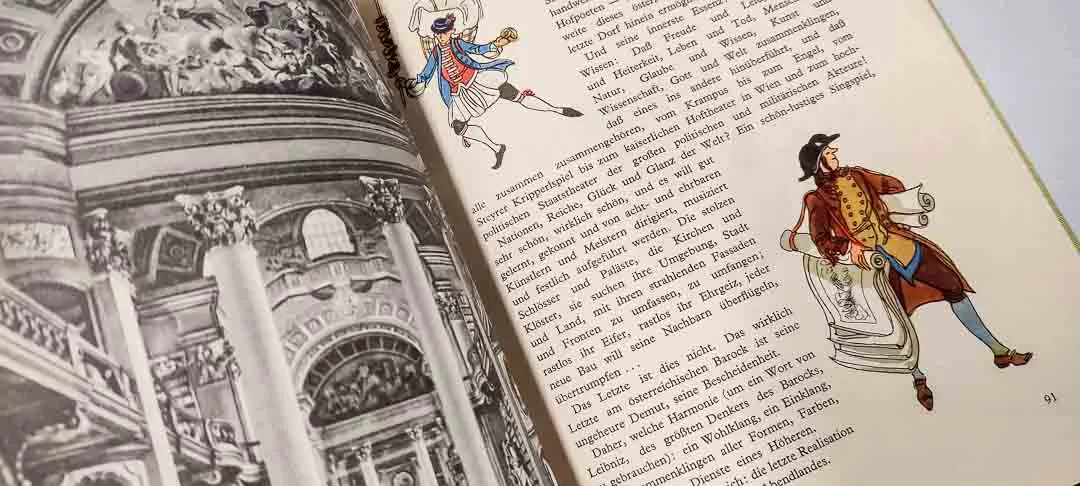 handwer
Hofpoeten —
weite dieses öster
letzte Dorf hinein ermög
Und seine innerste Essenz?
Wissen: Daß Freude und Lei
und Heiterkeit, Leben und Tod, Mensc
Natur, Glaube und Wissen, Kunst und
Wissenschaft, Gott und Welt zusammenklingen,
daß eines ins andere hinüberführt, und daß
alle zusammen zusammengehören, vom Krampus bis zum Engel, vom
Steyrer Kripperlspiel bis zum kaiserlichen Hoftheater in Wien und zum hoch-
politischen Staatstheater der großen politischen und militärischen Akteure!
Nationen, Reiche, Glück und Glanz der Welt? Ein schön-lustiges Singspiel,
sehr schön, wirklich schön, und es will gut
gelernt, gekonnt und von acht- und ehrbaren
Künstlern und Meistern dirigiert, musiziert
und festlich aufgeführt werden. Die stolzen
Schlösser und Paläste, die Kirchen und
Klöster, sie suchen ihre Umgebung, Stadt
und Land, mit ihren strahlenden Fassaden
und Fronten zu umfassen, zu umfangen;
rastlos ihr Eifer, rastlos ihr Ehrgeiz, jeder
neue Bau will seine Nachbarn überflügeln,
übertrumpfen . . .
Das Letzte ist dies nicht. Das wirklich
Letzte am österreichischen Barock ist seine
ungeheure Demut, seine Bescheidenheit.
Daher, welche Harmonie (um ein Wort von
Leibniz, des größten Denkers des Barocks,
zu gebrauchen); ein Wohlklang, ein Einklang,
mmenklingen aller Formen, Farben,
Dienste eines Höheren,
ich: die letzte Realisation
Abendlandes.
91